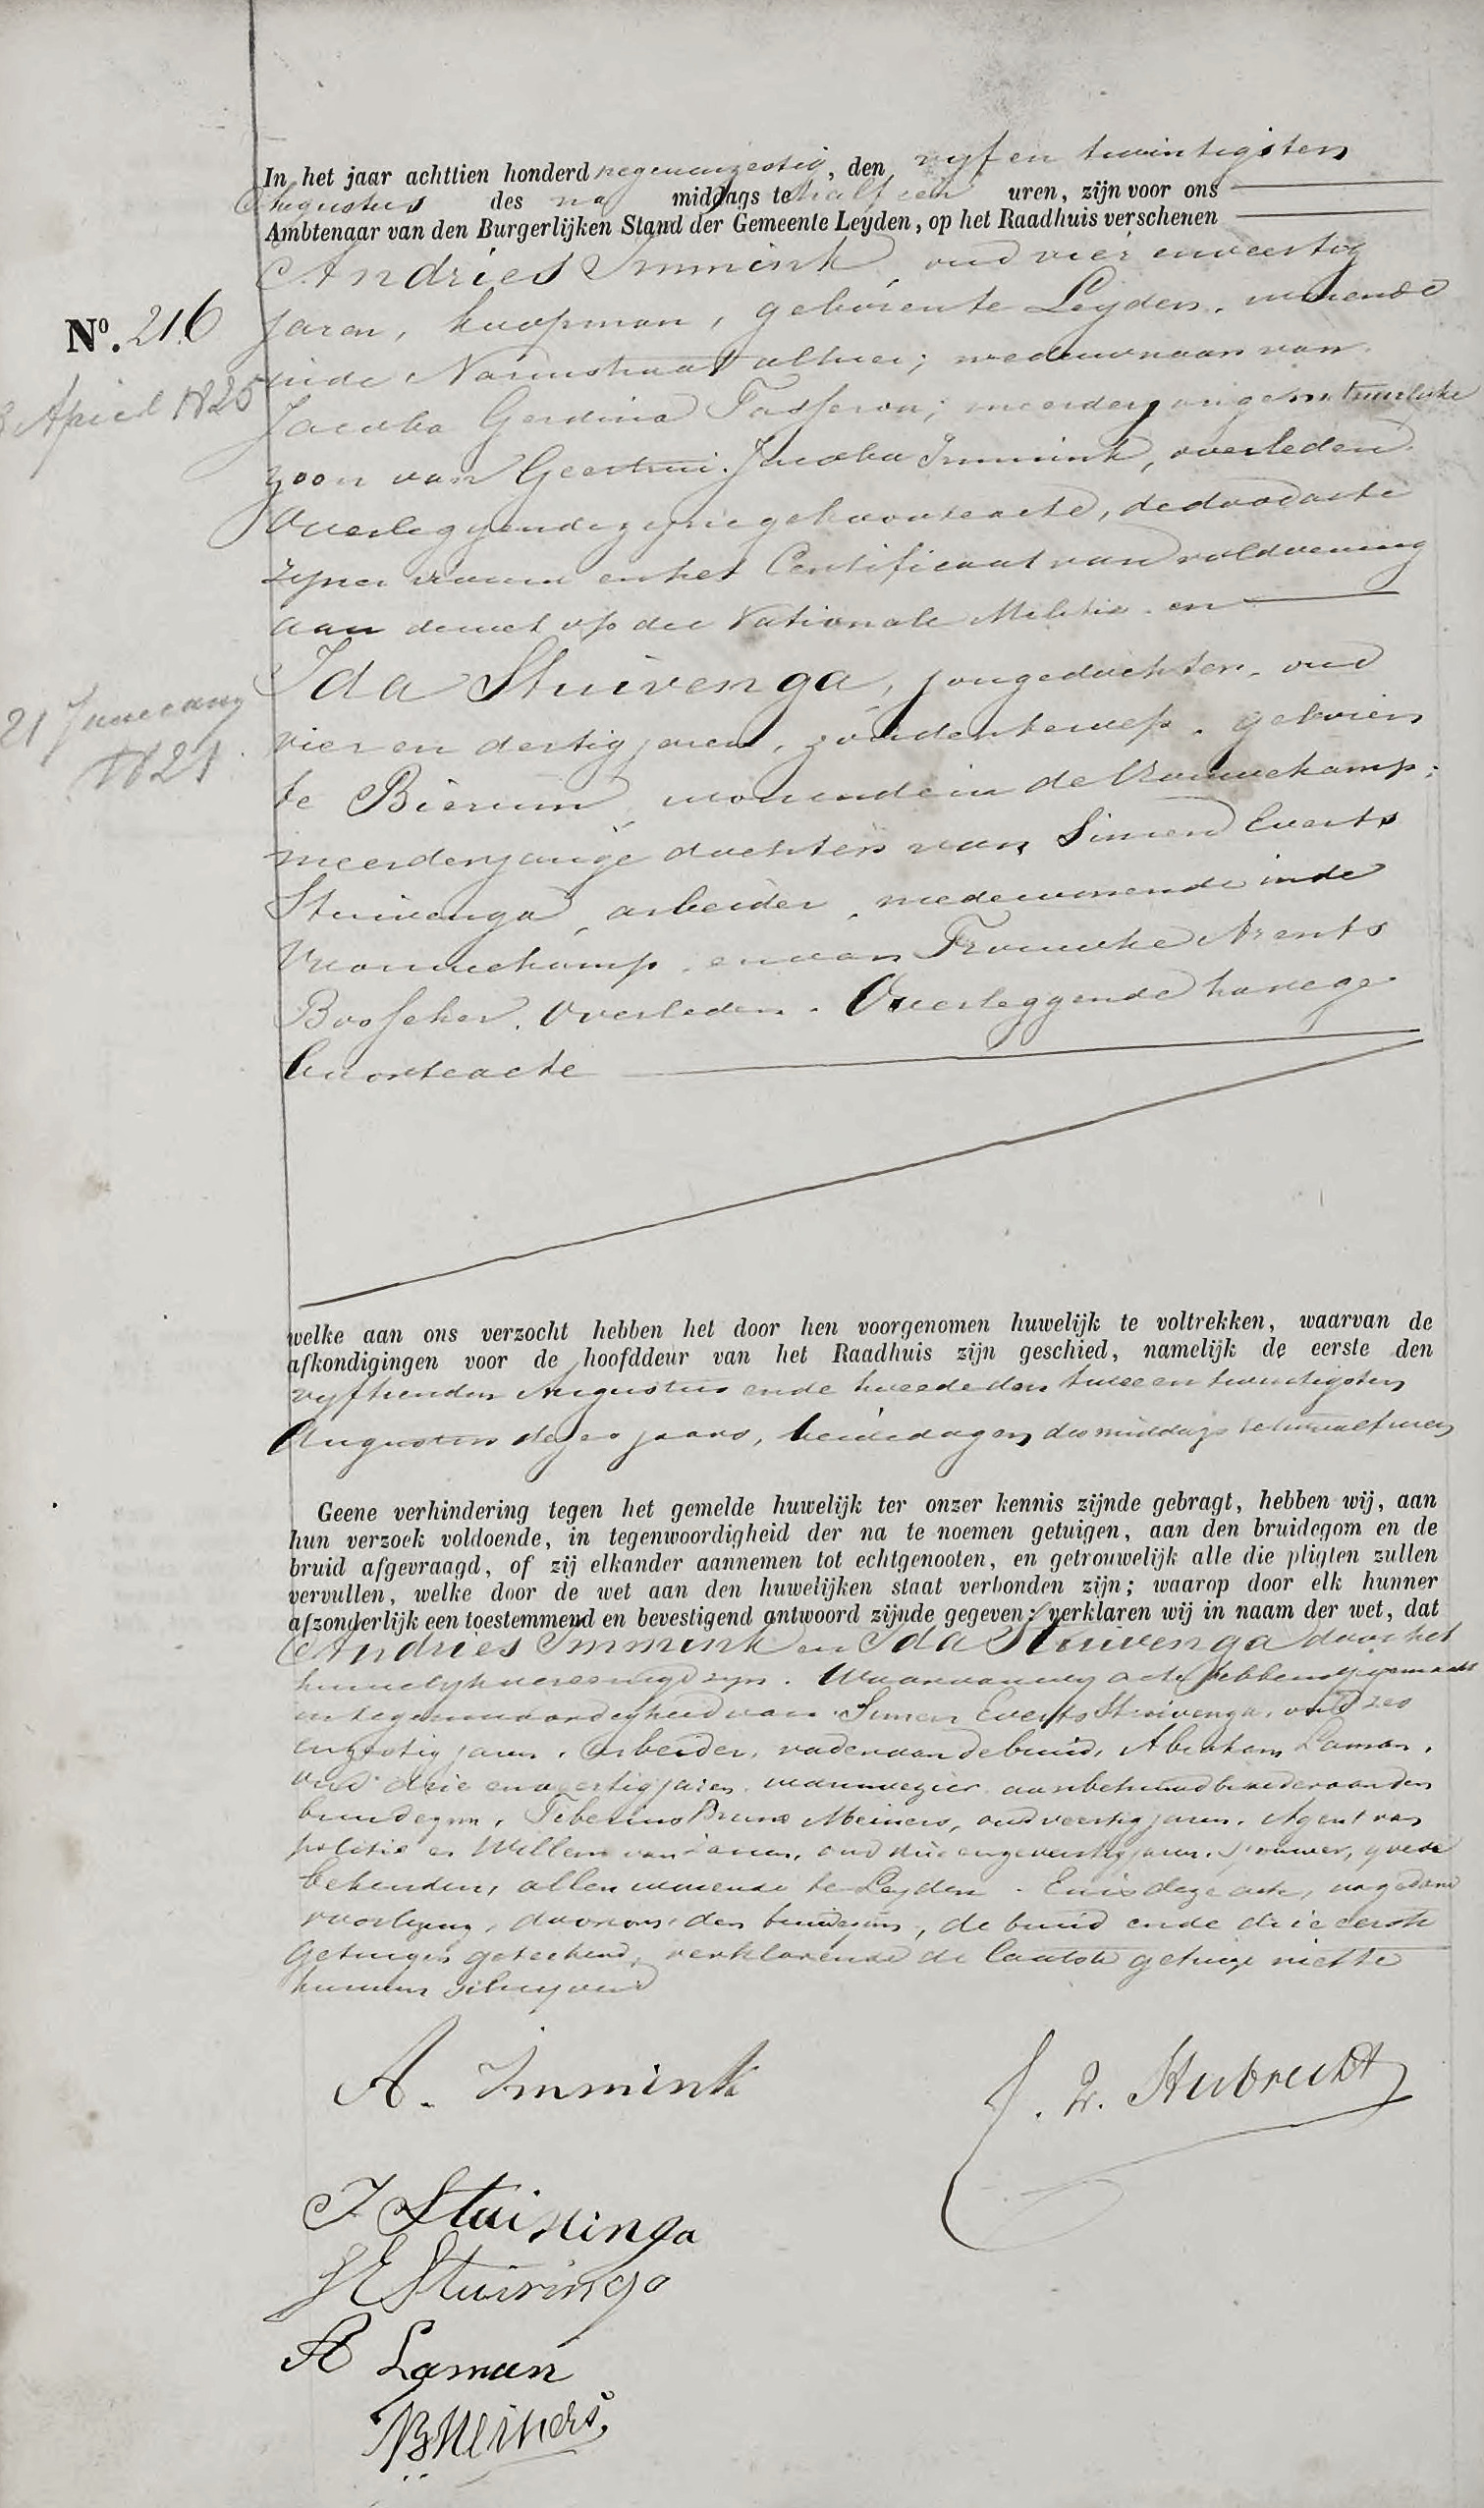 In het jaar achttien honderd negenenzestig, den vyf en twintigsten
Augustus des na middags te half een uren, zijn voor ons
Ambtenaar van den Burgerlijken Stand der Gemeente Leyden, op het Raadhuis verschenen
Andries Immink, oud vier enveertig
No. 216
jaren, koopman, geboren te Leyden, wonende
in de straat alhier; weduwnaar van
April 1825
Jacoba Gerdina Tasseron; meerderjarige natuurlyke
zoon van Geertrui Jacoba Immink, overleden
Overleggende zyne geboorteacte, de doodacte
zyner vrouw en het Certificaat van voldoening
aan de wet op de Nationale Militie en
Ida Stuivenga, jongedochter, oud
21 January
1821
vier en dertig jaren, zonder beroep, geboren
te Bierum, wonende in de Vrouwekamp;
meerderjarige dochter van Simen Everts
Stuivenga, arbeider, mede wonende in de
Vrouwekamp, en van Trouwke Arents
Bosscher, Overleden. Overleggende hare ge
boorteacte
welke aan ons verzocht hebben het door hen voorgenomen huwelijk te voltrekken, waarvan de
afkondigingen voor de hoofddeur van het Raadhuis zijn geschied, namelijk de eerste den
vyftienden Augustus en de tweede den twee en twintigsten
Augustus dezes jaars, beide dagen des middags te twaalf uren
Geene verhindering tegen het gemelde huwelijk ter onzer kennis zijnde gebragt, hebben wij, aan
hun verzoek voldoende, in tegenwoordigheid der na te noemen getuigen, aan den bruidegom en de
bruid afgevraagd, of zij elkander aannemen tot echtgenooten, en getrouwelijk alle die pligten zullen
vervullen, welke door de wet aan den huwelijken staat verbonden zijn; waarop door elk hunner
afzonderlijk een toestemmend en bevestigend antwoord zijnde gegeven; verklaren wij in naam der wet, dat
Andries Immink en Ida Stuivenga door het
huwelyk vereenigd zyn. Waarvan wy acte hebben opgemaakt
in tegenwoordigheid van Simen Everts Stuivenga, oud zes
en zestig jaren, arbeider, vader van de bruid, Abraham Laman,
oud drie en veertig jaren, aanbehuwd broeder van den
bruidegom, Tiberius Bruno Meiners, oud veertig jaren, Agent van
politie en Willem van oud drie en jaren, goede
bekenden, allen wonende te Leyden. En is deze acte, na gedane
voorlezing, door ons, den bruidegom, de bruid en de drie eerste
getuigen geteekend, verklarende de laatste getuige niet te
kunnen schryven
A. Immink
Hubrecht
I Stuivinga
S E Stuivinga
A Laman
TBMeiners